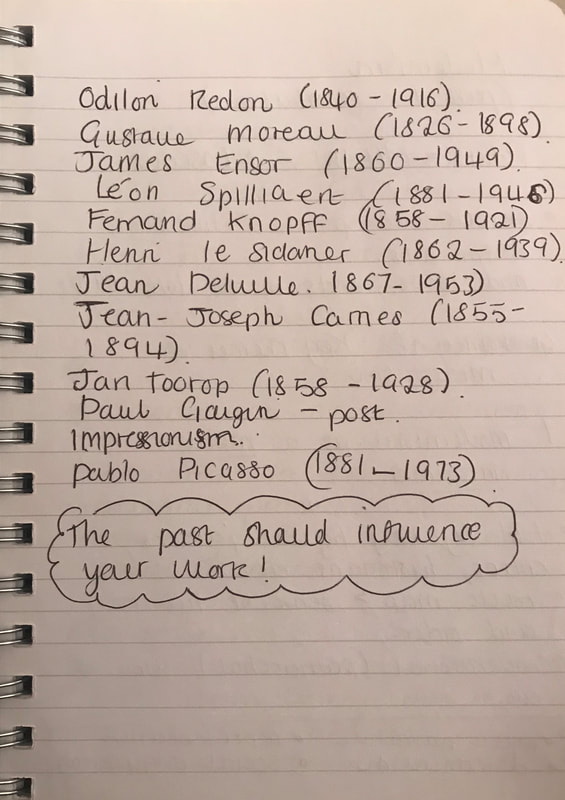 Odilon Redon (1840 - 1916).
Gustave Moreau (1826 - 1898).
James Ensor (1860 - 1949).
Léon Spilliaert (1881 - 1946)
Fernand Knopff (1858 - 1921)
Henri le Sidaner (1862 - 1939).
Jean Delville. 1867- 1953)
Jean- Joseph Carries (1855-
1894).
Jan Toorop (1858 - 1928).
Paul Gaugin - post.
Impressionism.
Pablo Picasso (1881 - 1973).
The past should influence
your work!